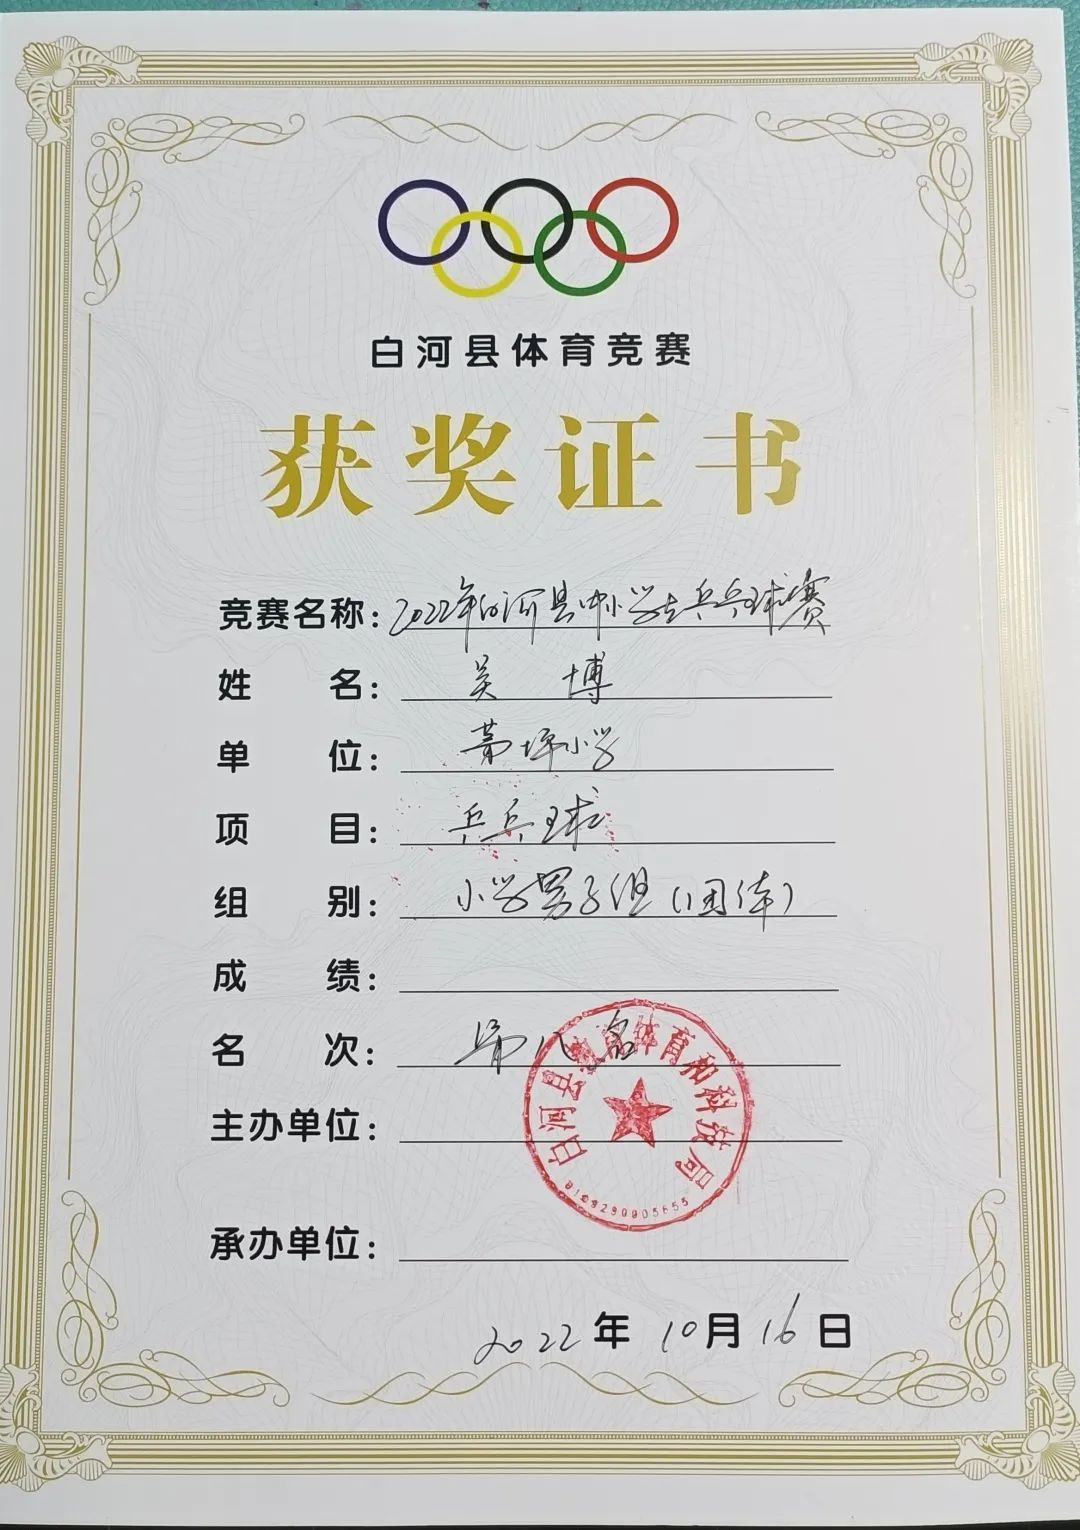 白河县体育竞赛
获奖证书
竞赛名称：2022年白河县中小学生乒乓球赛
姓 名：吴 博
单 位：茅坪小学
项 目：乒乓球
组 别：小学男子组（团体）
成 绩：
名 次：第八名
主办单位：
白河县教育体育和科技局
承办单位：
2022年10月16日